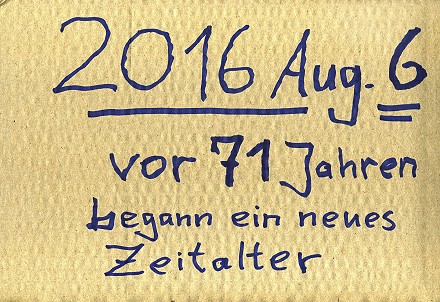 2016 Aug. 6
vor 71 Jahren
begann ein neues
Zeitalter